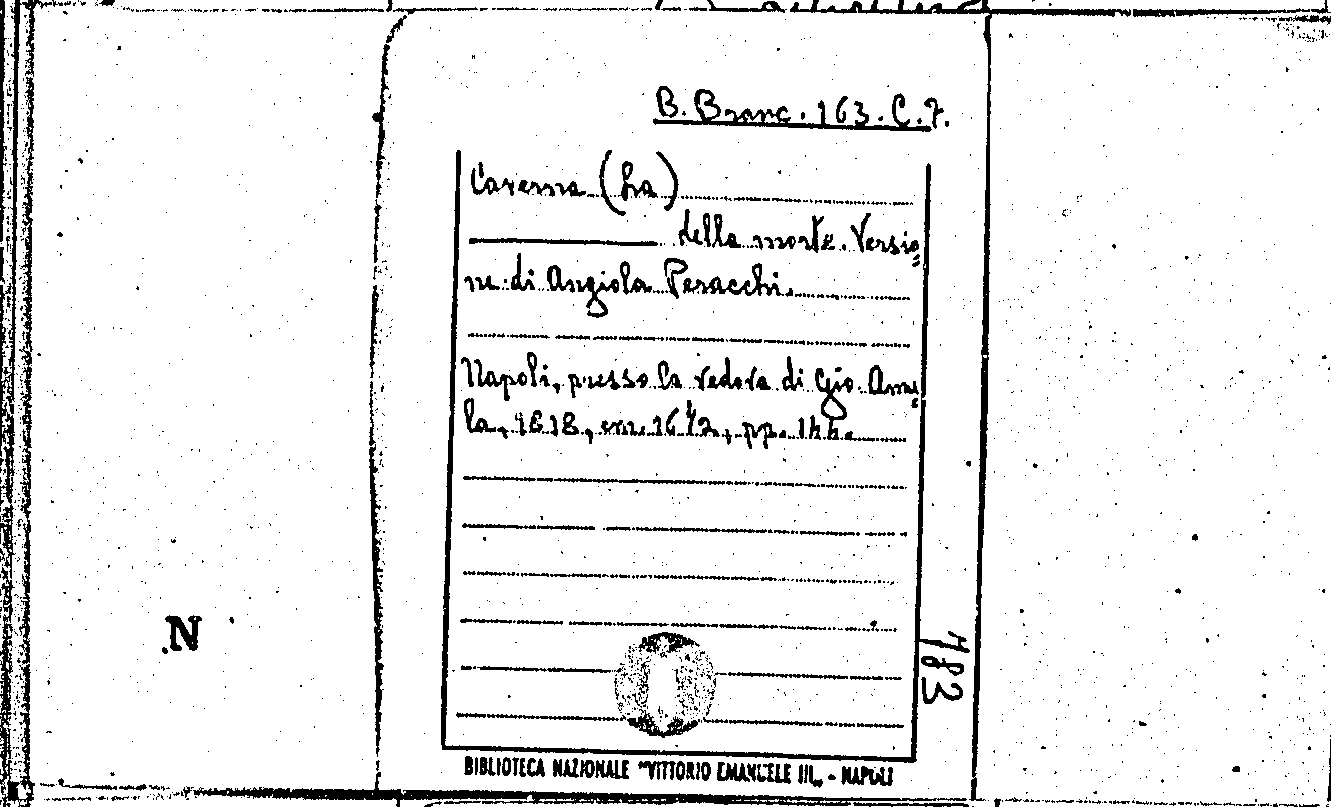 B. Branc. 163. C. 7.
Caverna (La)
della morte. Versio=
ne di Angiola Peracchi.
Napoli, presso la vedova di Gio. Amu=
la, 1818, in 16 1/2, pp. 144.
N
483
BIBLIOTECA NAZIONALE "VITTORIO EMANUELE III„ - NAPOLI